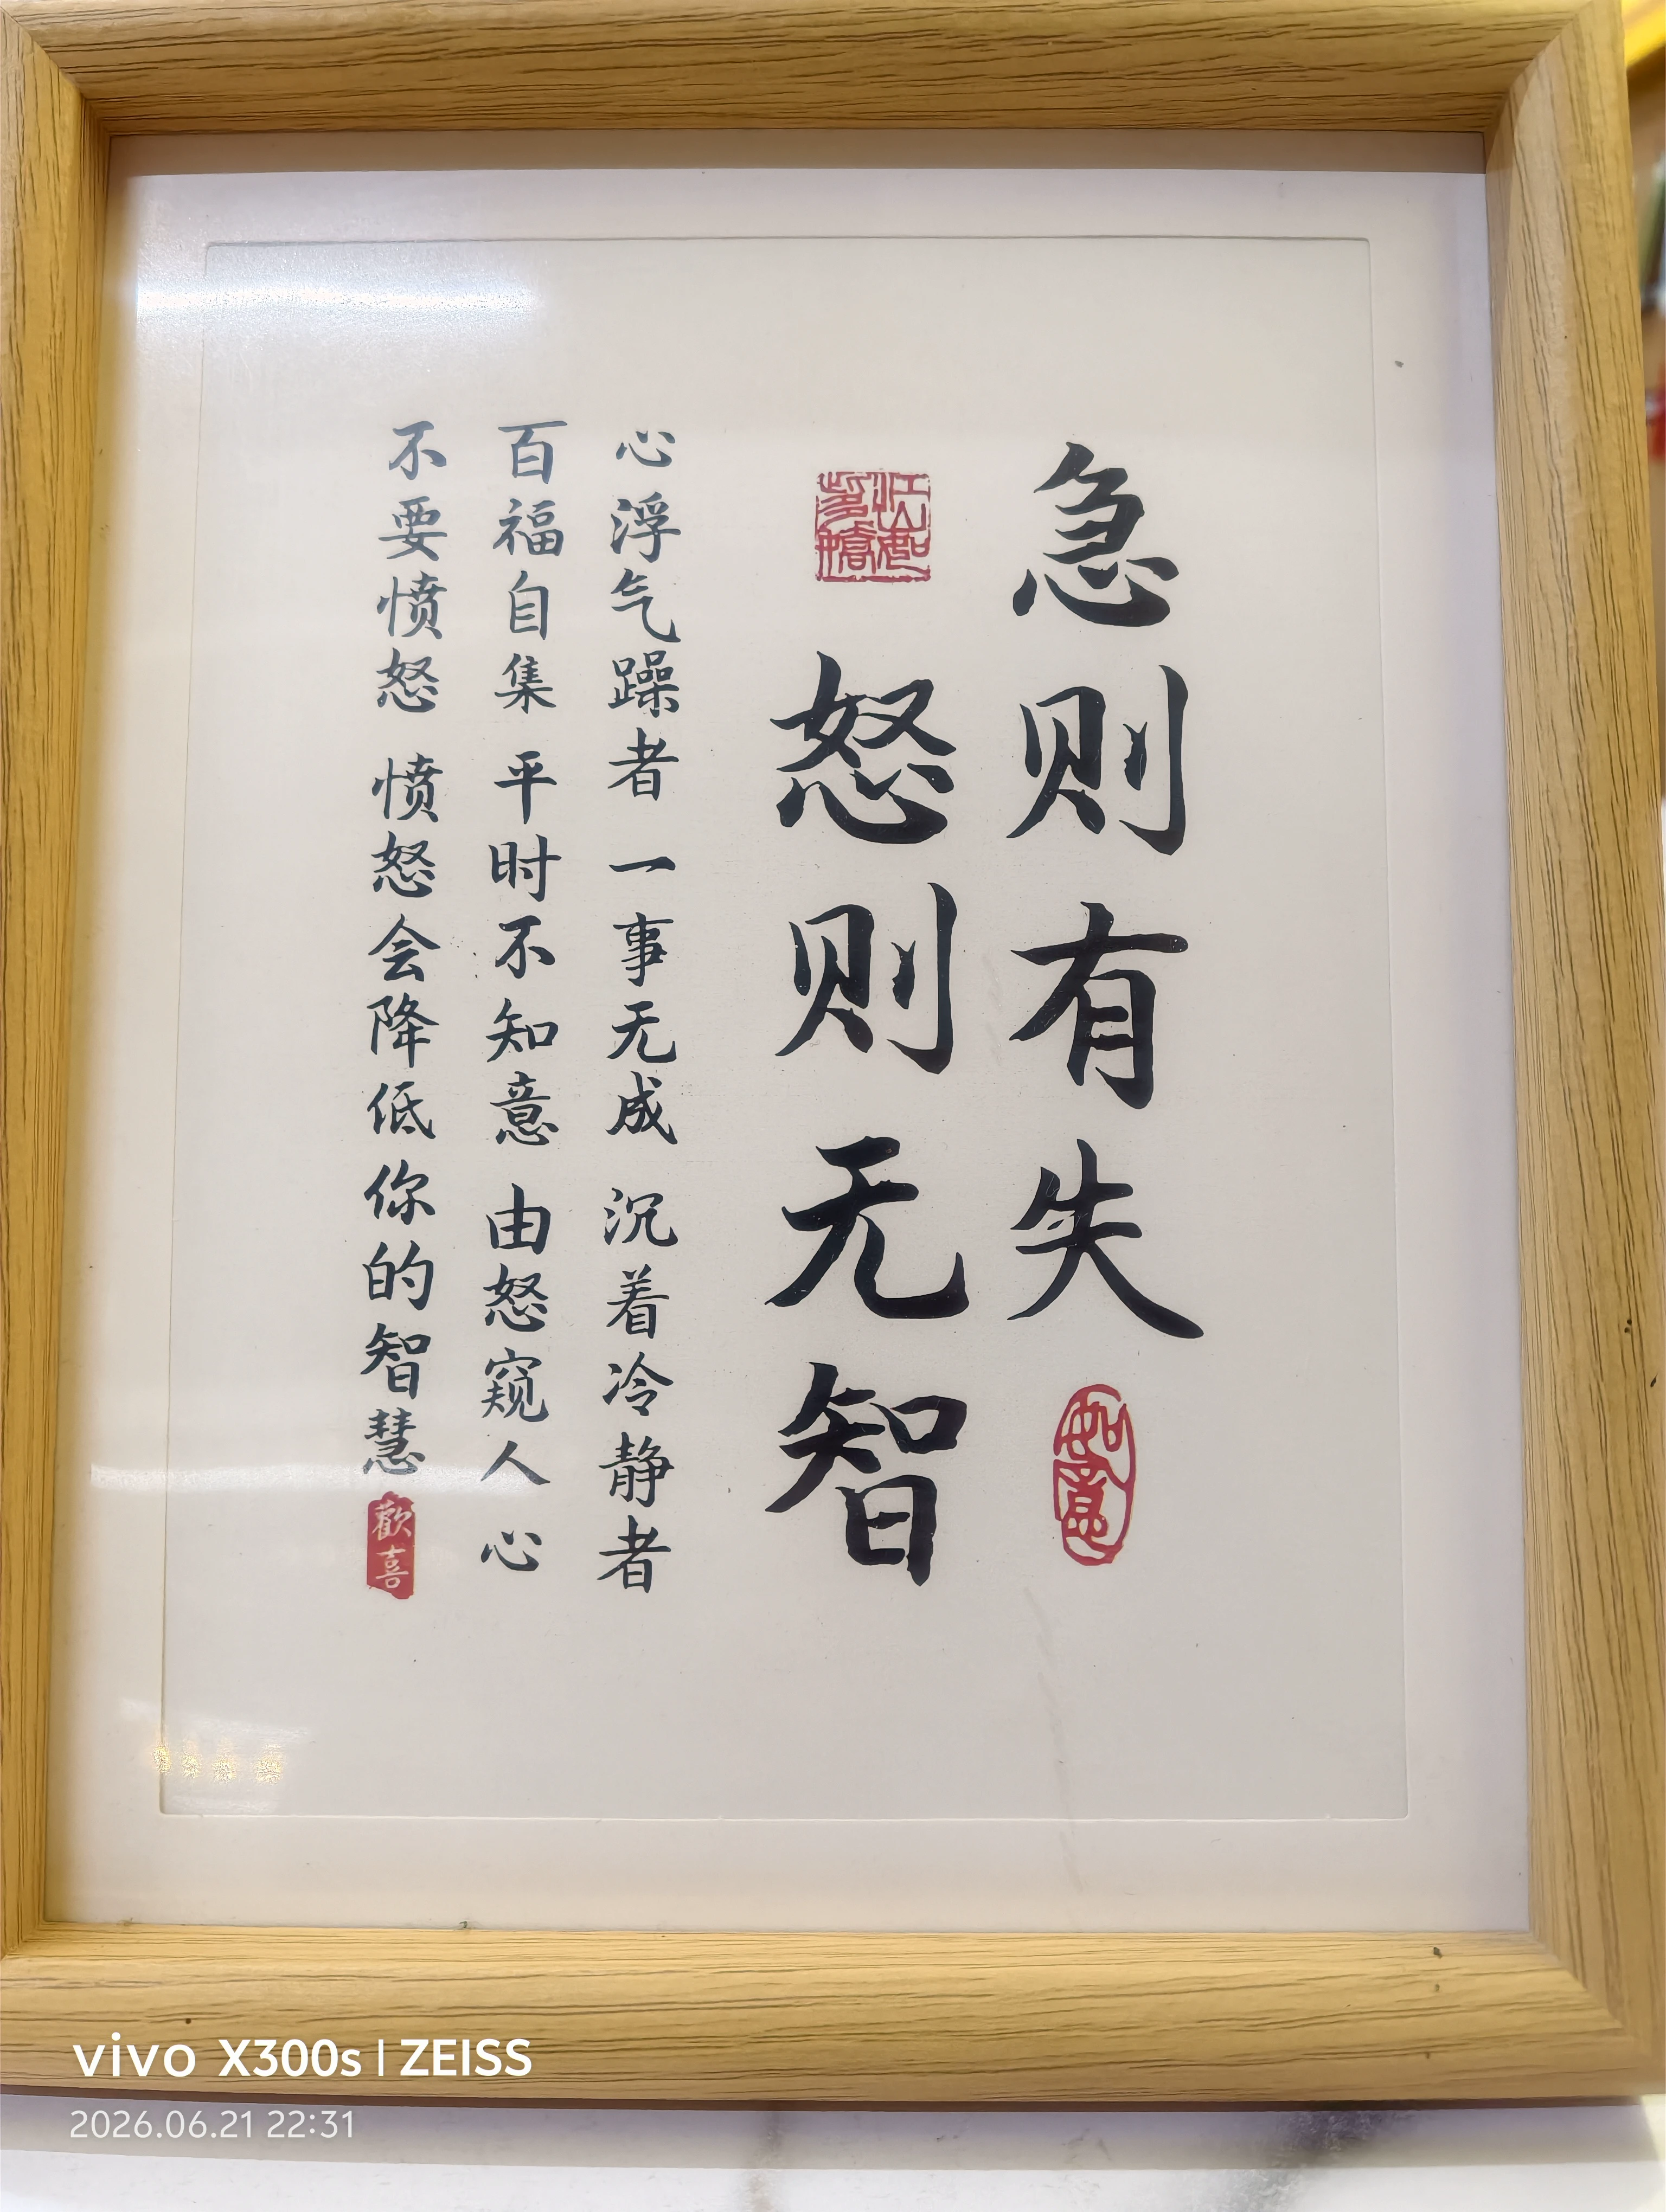 急则有失
如意
怒则无智
心浮气躁者 一事无成 沉着冷静者
百福自集 平时不知意 由怒窥人心
不要愤怒 愤怒会降低你的智慧
歡喜
vivo X300s | ZEISS
2026.06.21 22:31